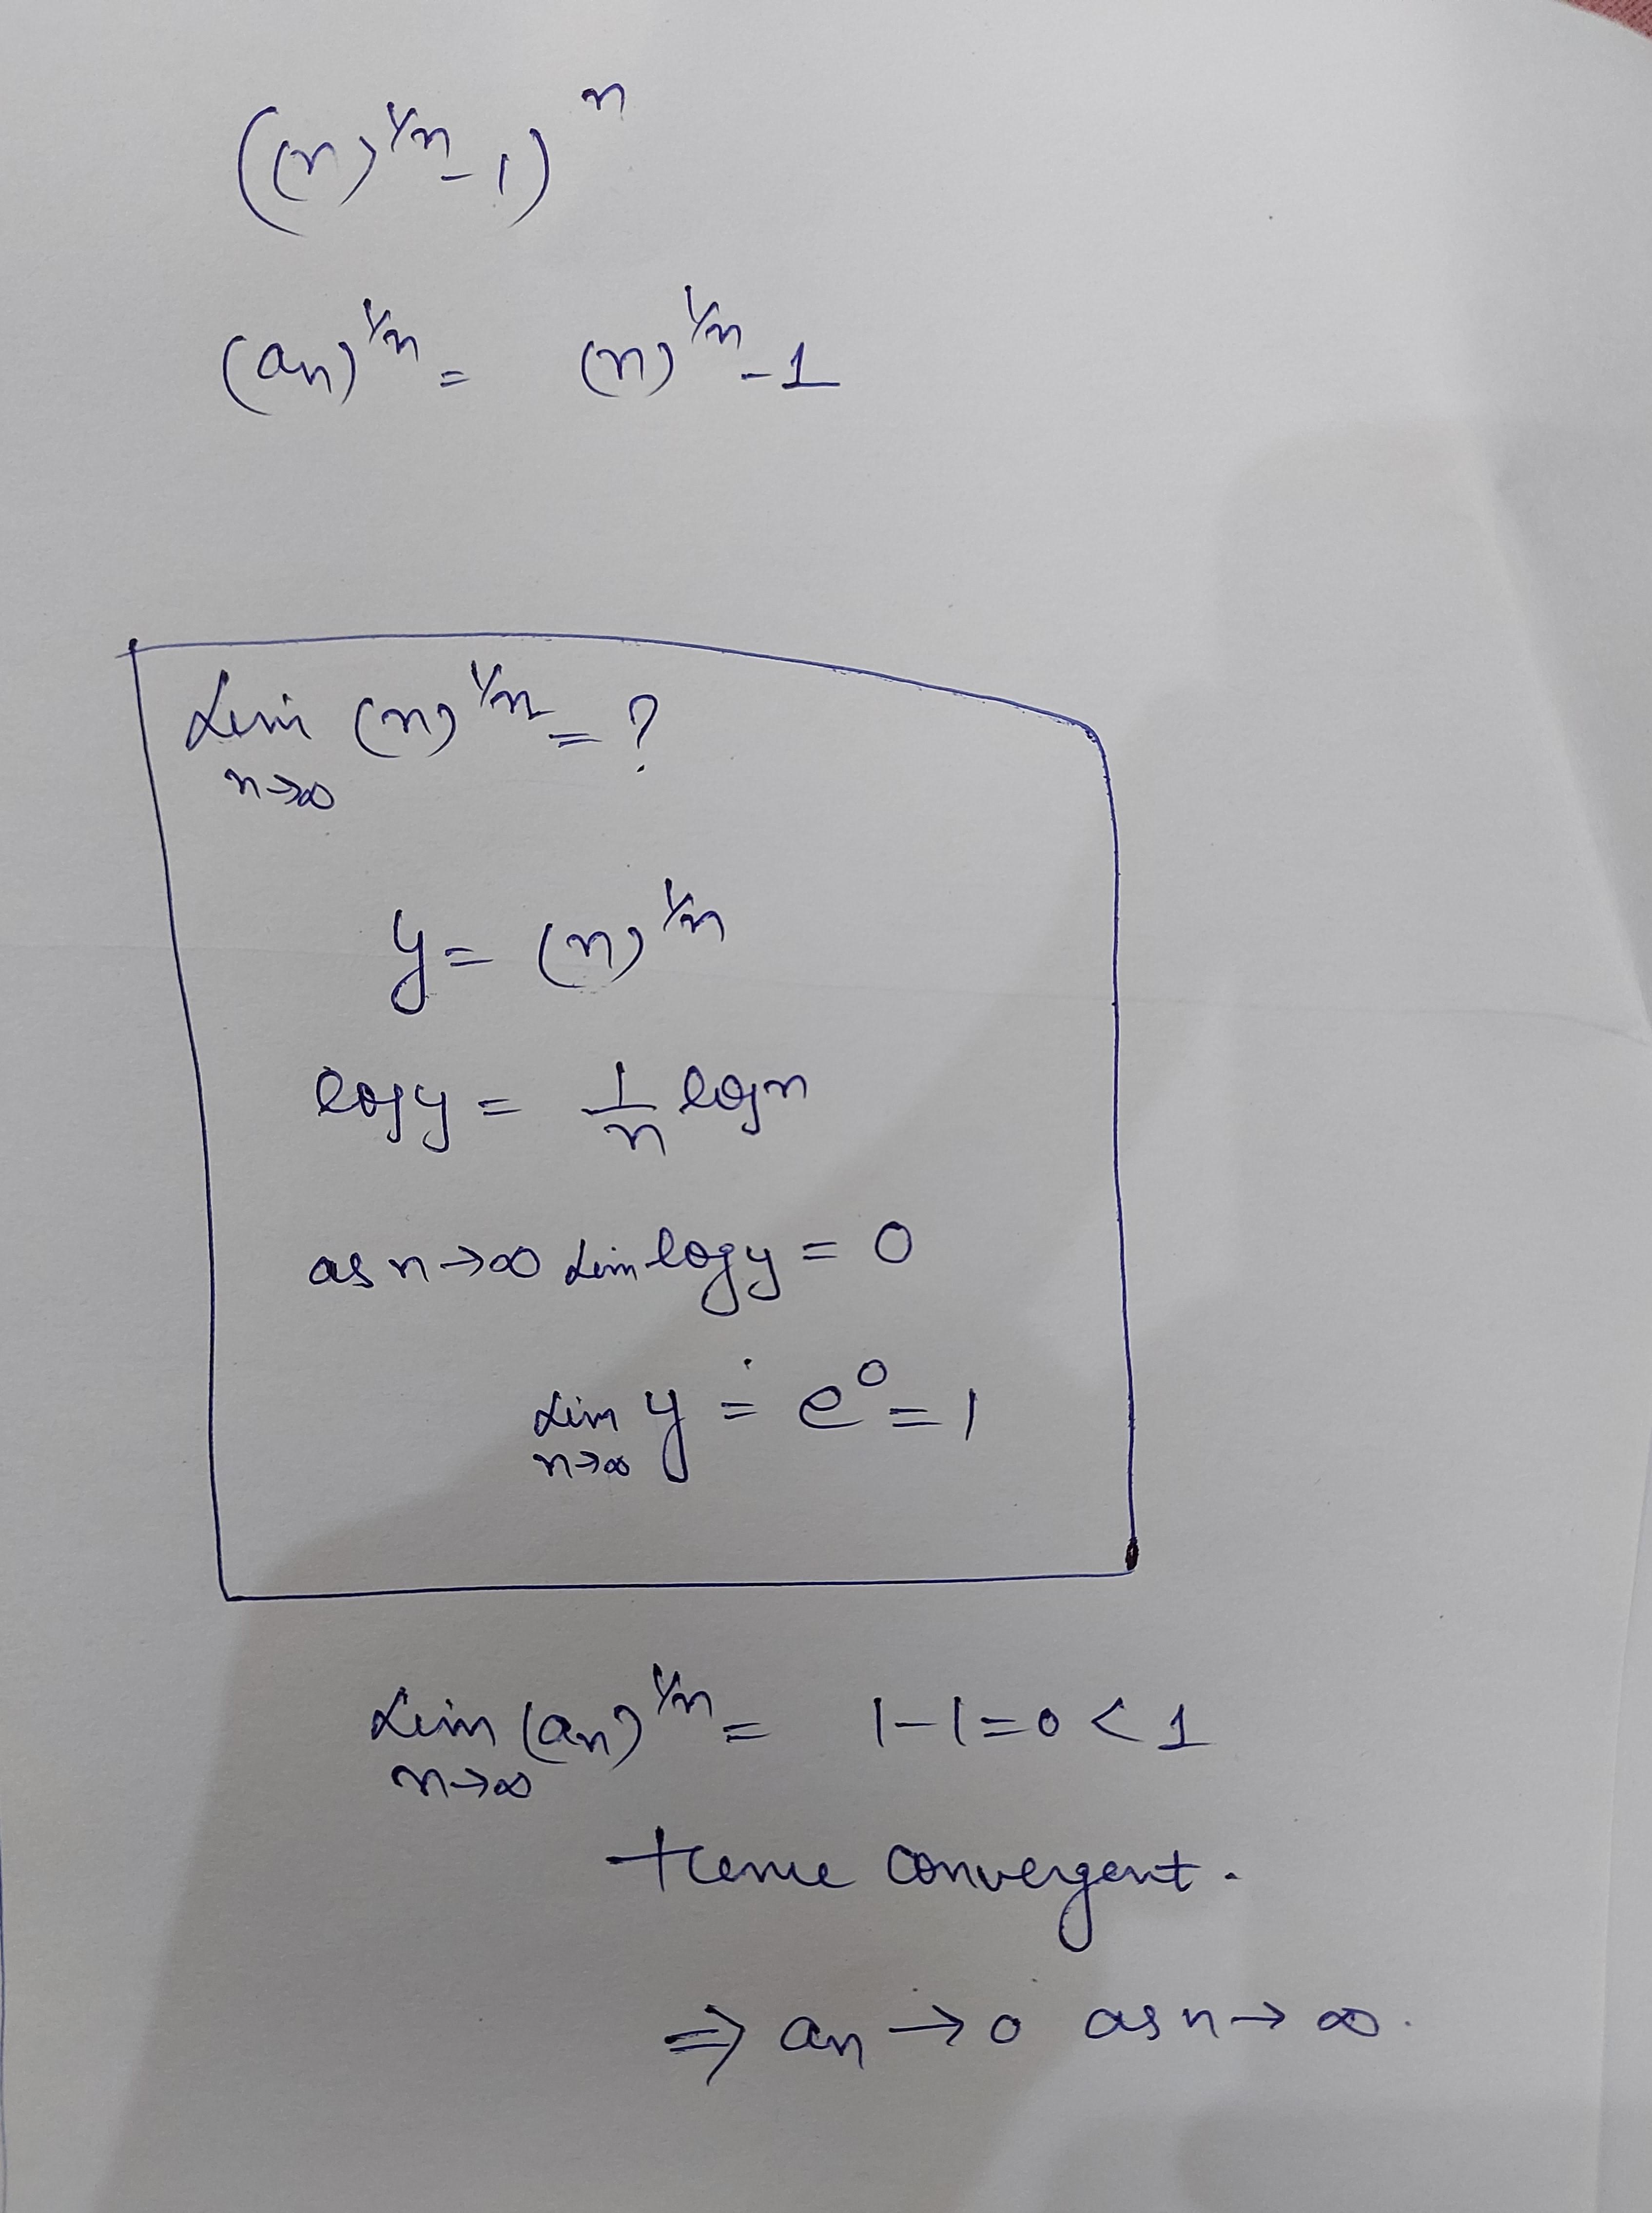 ((n)^{1/n} - 1)^n
(a_n)^{1/n} = (n)^{1/n} - 1
Lim (n)^{1/n} = ?
n→∞
y = (n)^{1/n}
log y = 1/n log n
as n→∞ Lim log y = 0
Lim y = e^0 = 1
n→∞
Lim (a_n)^{1/n} = 1-1=0 < 1
n→∞
Hence convergent.
⇒ a_n → 0 as n → ∞.